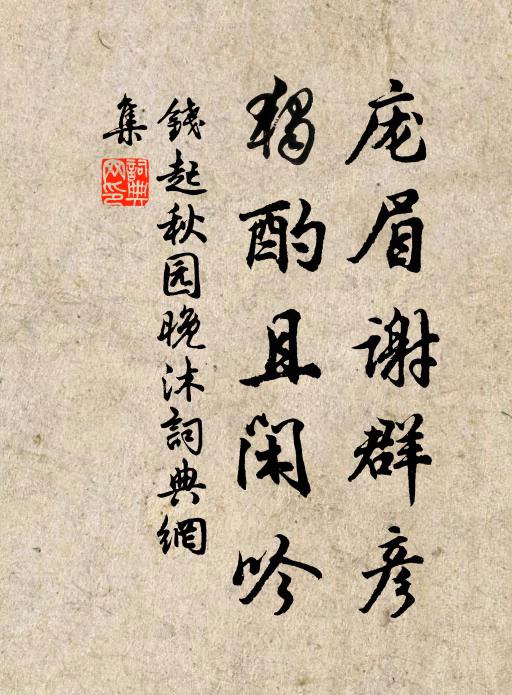 庞眉谢群彦
独酌且闲吟
錢起秋园晚沐詞典網
集
詞典网印